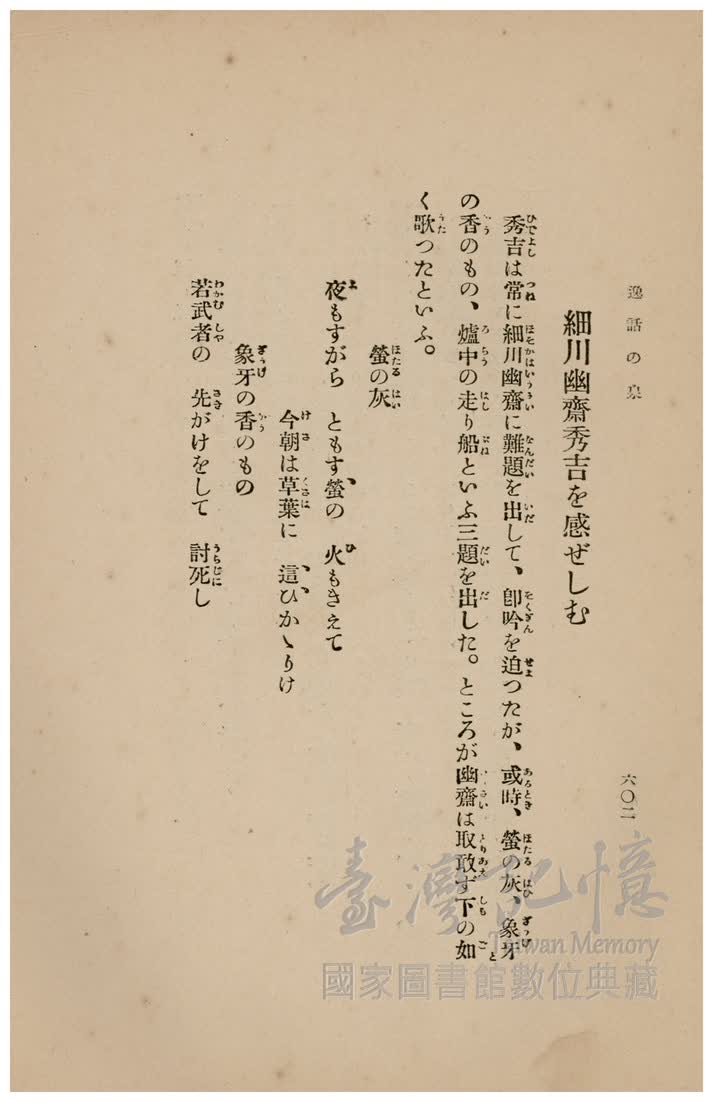 逸話の泉
六〇二
細川幽齋秀吉を感ぜしむ
秀吉は常に細川幽齋に難題を出して、卽吟を迫つたが、或時、螢の灰、象牙
の香のもの、爐中の走り船といふ三題を出した。ところが幽齋は取敢ず下の如
く歌つたといふ。
螢の灰
夜もすがら ともす、螢の 火もきえて
今朝は草葉に 這、ひ、かゝりけ
象牙の香のもの
若武者の 先がけをして 討死し
臺灣記憶
Taiwan Memory
國家圖書館數位典藏